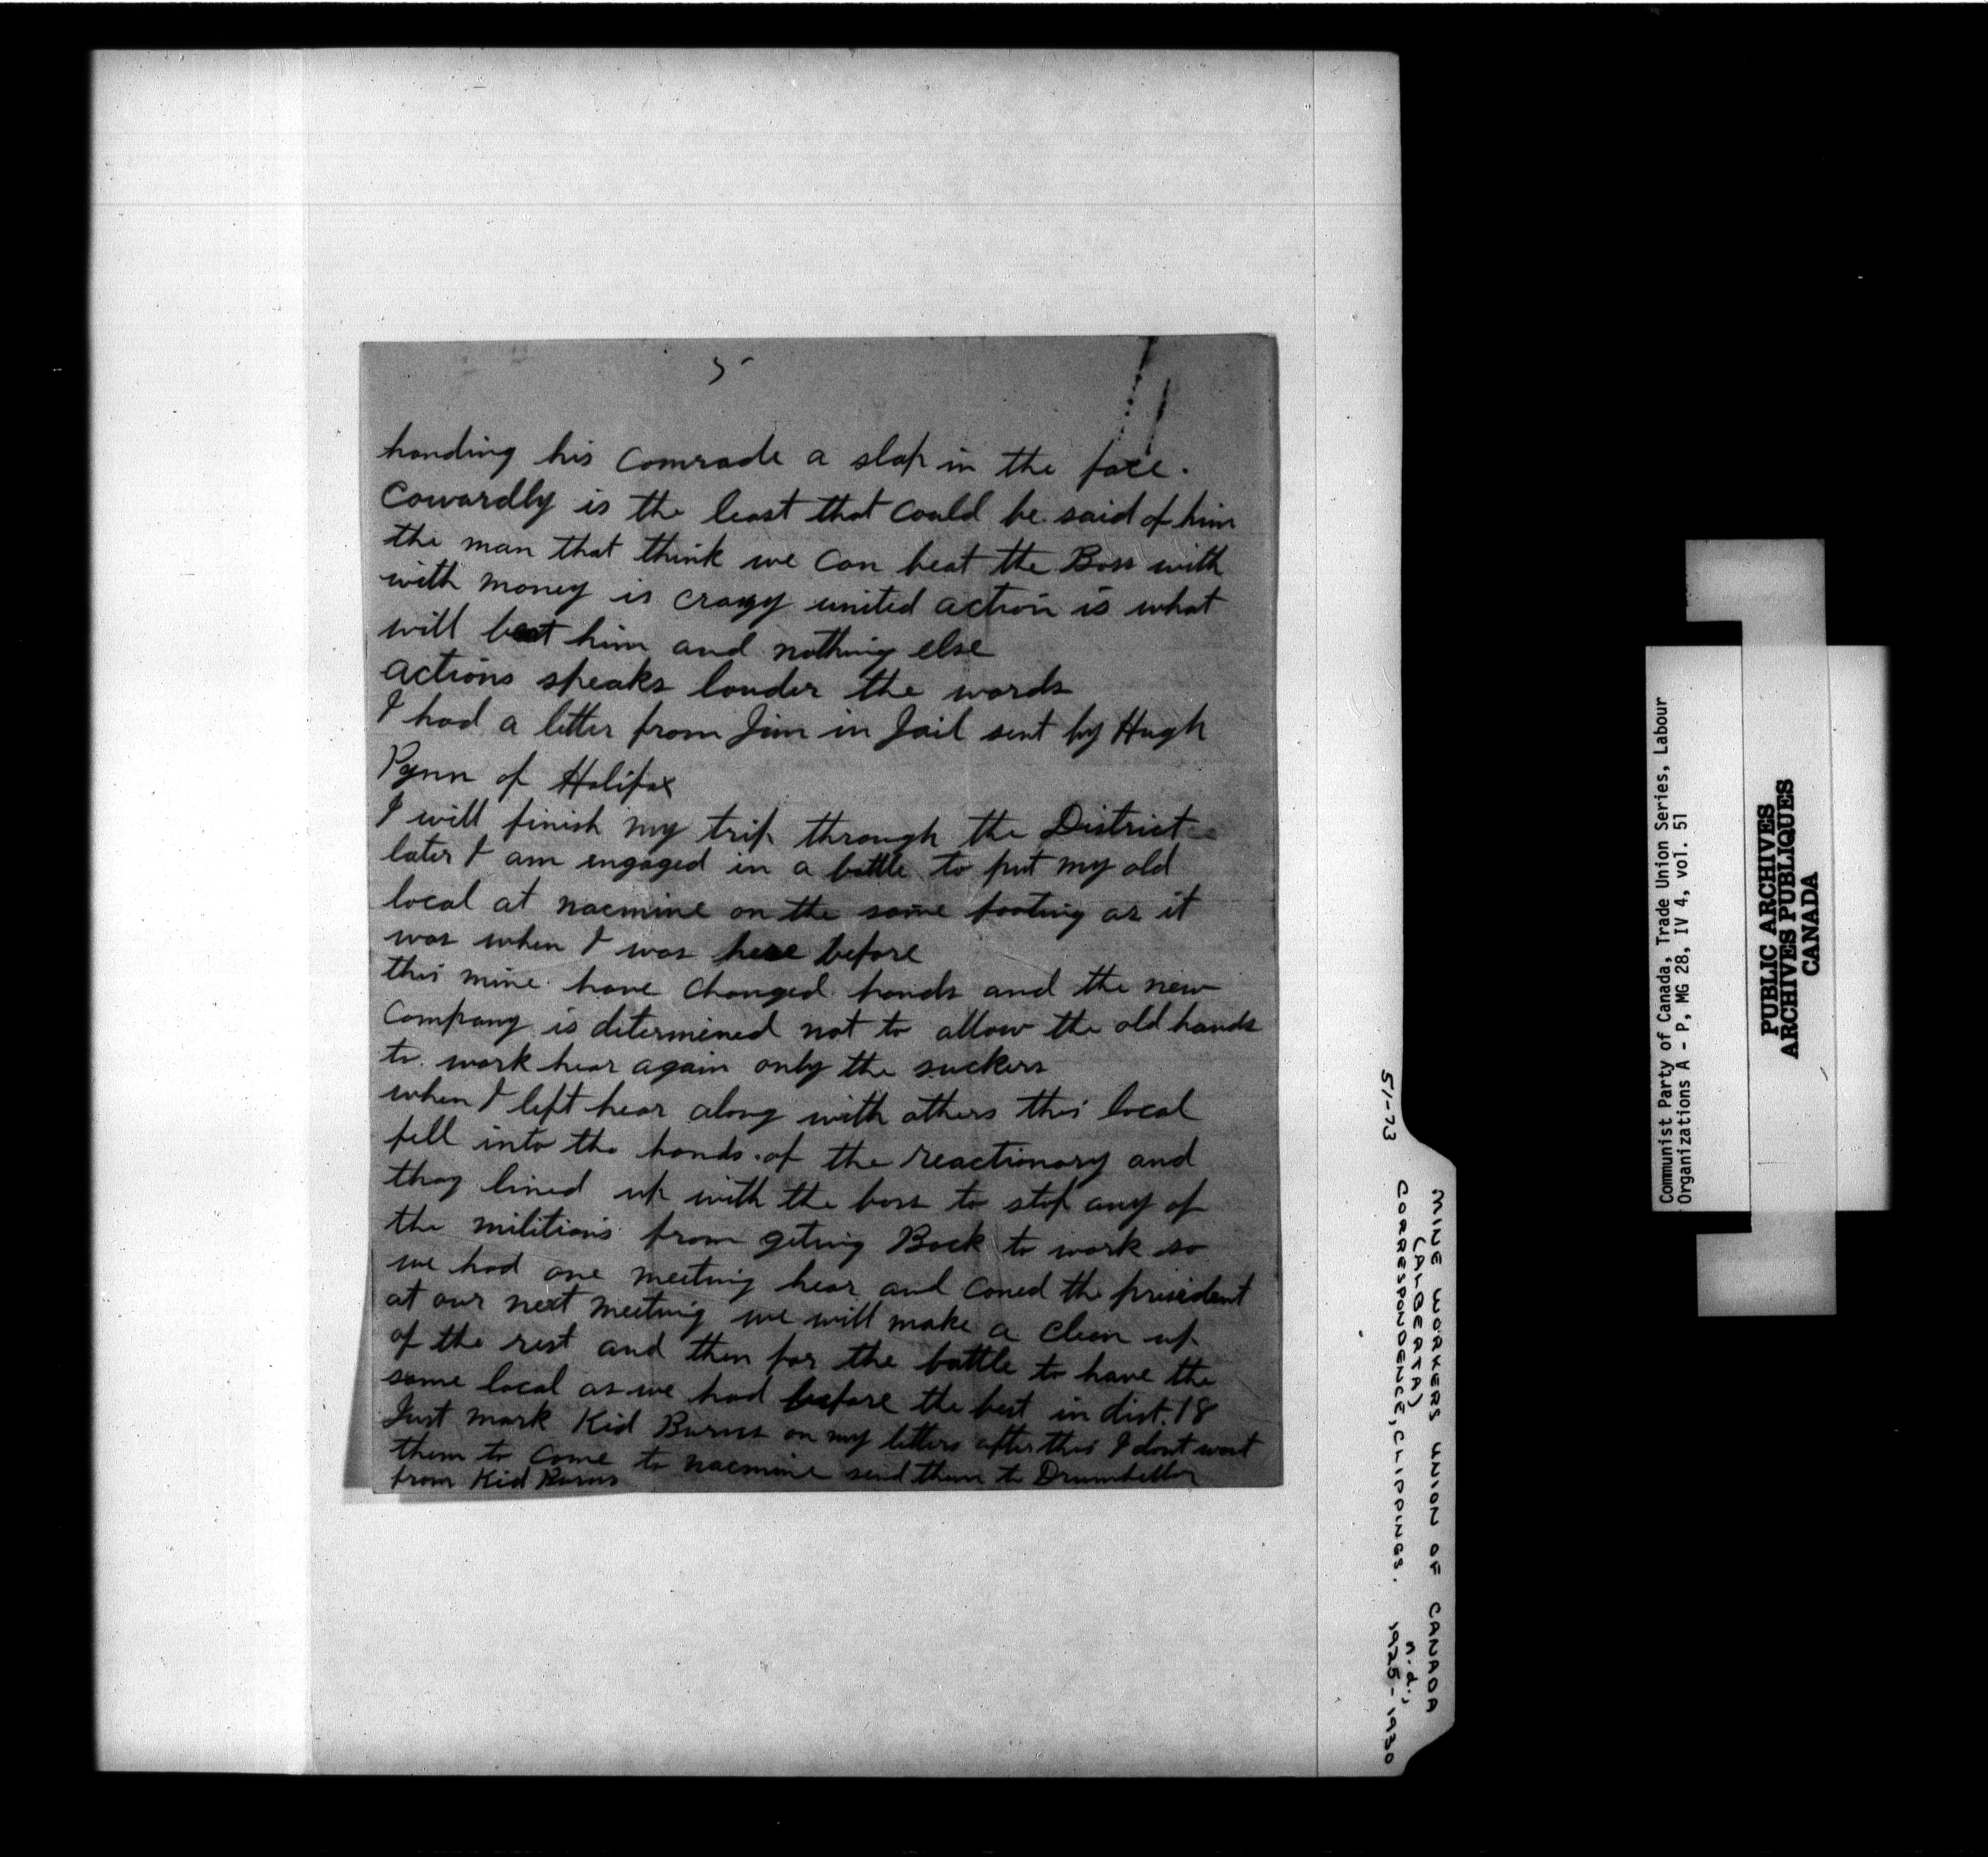 5
handing his Comrade a slap in the face.
Cowardly is the least that could be said of him
the man that think we can beat the Boss with
with money is crazy united action is what
will beat him and nothing else
actions speaks louder the words
I had a letter from Jim in Jail sent by Hugh
Pynn of Halifax
I will finish my trip through the District
later I am engaged in a battle to put my old
local at nacmine on the same footing as it
was when I was here before
this mine have changed hands and the new
Company is determined not to allow the old hands
to work hear again only the suckers
when I left hear along with others this local
fell into the hands of the reactionary and
thay lined up with the boss to stop any of
the militions from geting Back to work so
we had one meeting hear and caned the president
at our next meeting we will make a clean up
of the rest and then for the battle to have the
same local as we had before the best in dist. 18
Just mark Kid Burns on my letters after this I dont want
them to come to nacmine send them to Drumheller
from Kid Burns
51-73
MINE WORKERS UNION OF CANADA
(ALBERTA)
CORRESPONDENCE, CLIPPINGS. n.d.; 1925-1930
Communist Party of Canada, Trade Union Series, Labour
Organizations A - P, MG 28, IV 4, vol. 51
PUBLIC ARCHIVES
ARCHIVES PUBLIQUES
CANADA